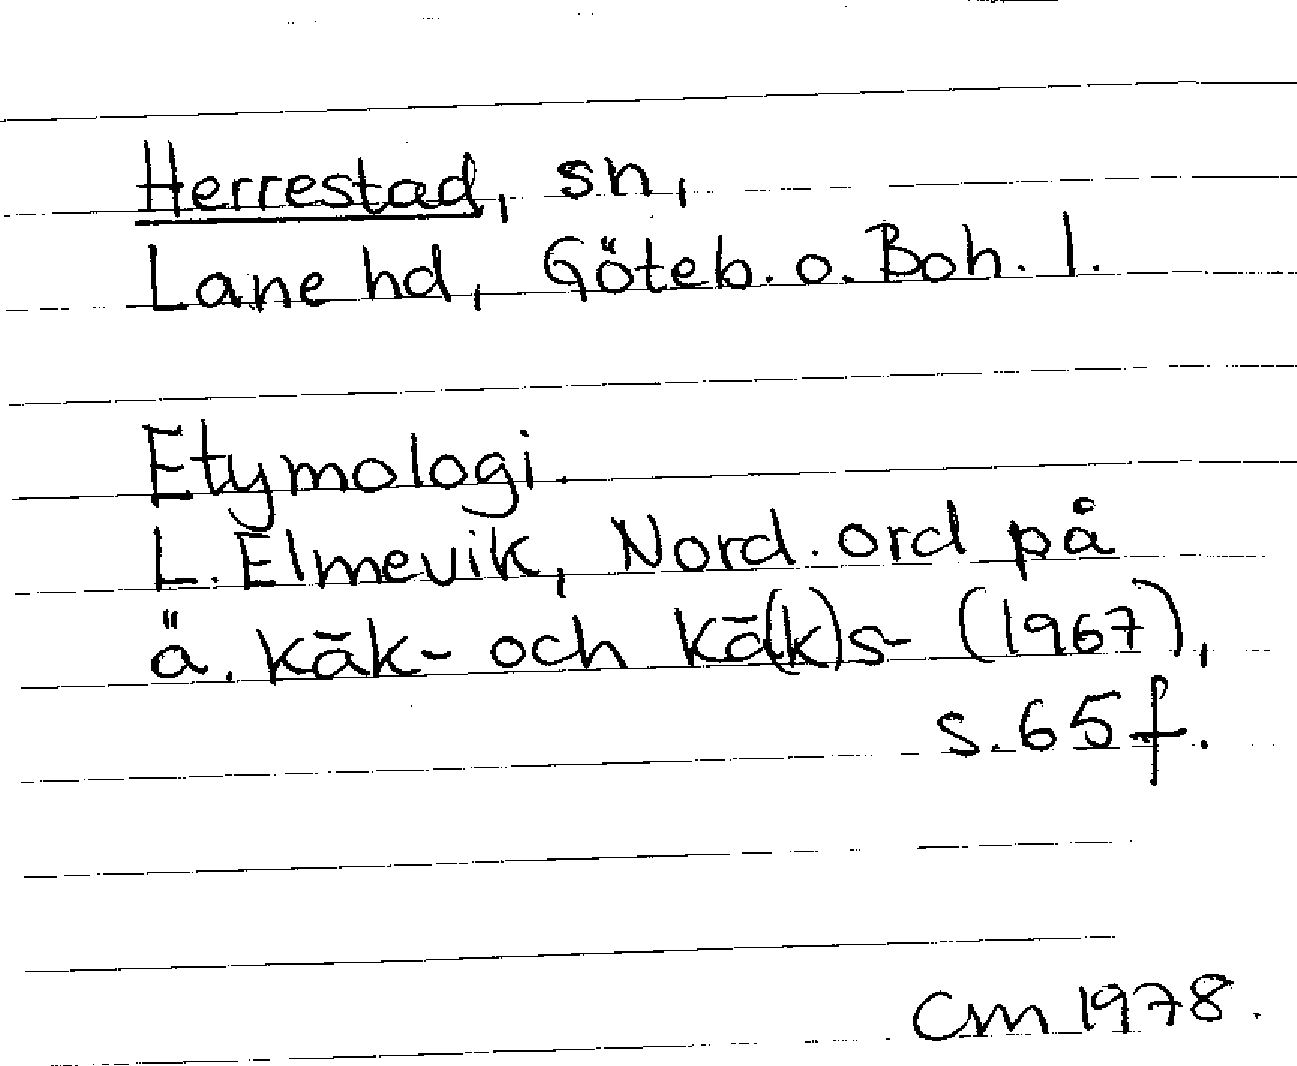 Herrestad, sn,
Lane hd, Göteb. o. Boh. l.
Etymologi.
L. Elmevik, Nord. ord på
ä. kāk- och kā(k)s- (1967),
s. 65 f.
CM 1978.